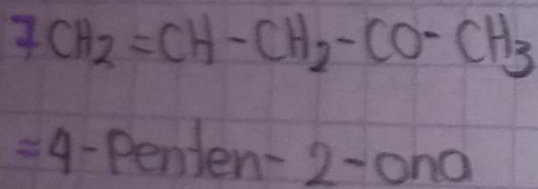 7 CH₂=CH-CH₂-CO-CH₃
=4-Penten-2-ona